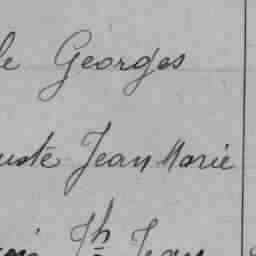 le Georges
uste Jean Marie
Jh Jean